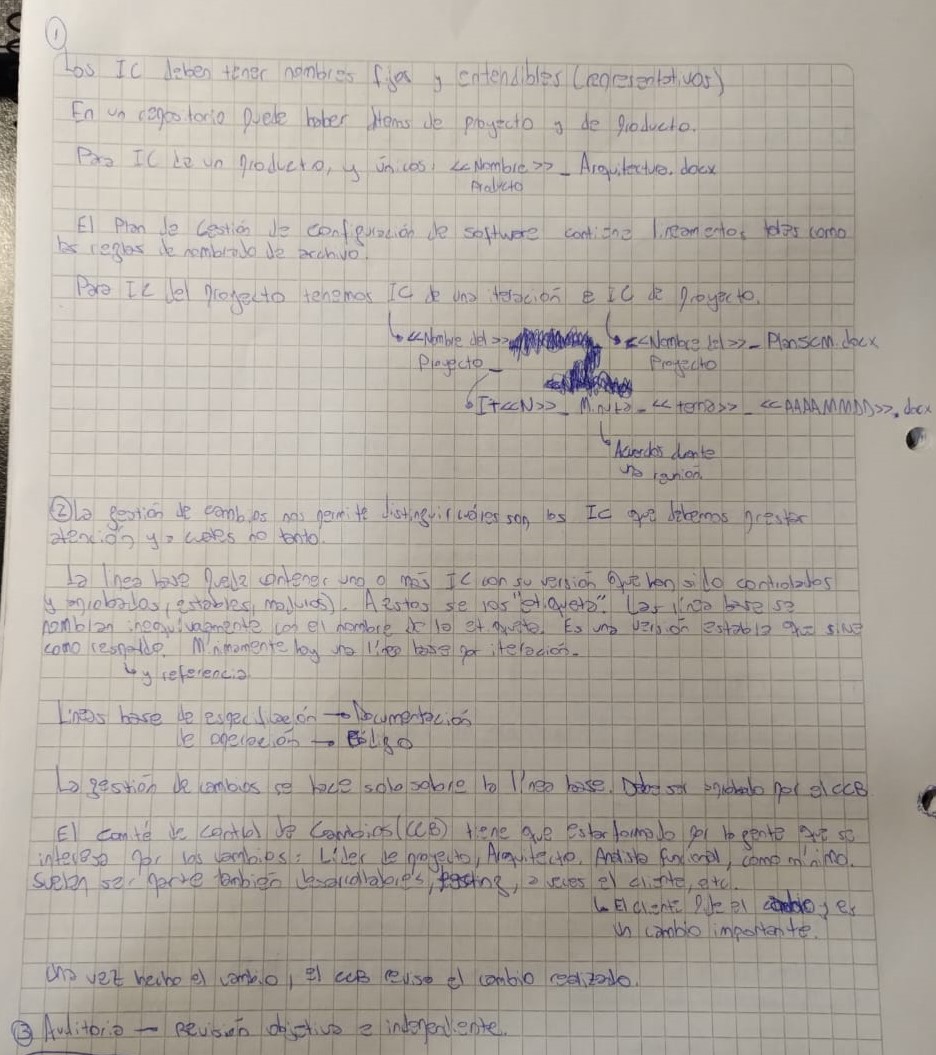 ①
Los IC deben tener nombres fijos y entendibles (representativos)
En un repositorio puede haber ítems de proyecto y de producto.
Para IC de un producto, y únicos: <<Nombre>>_Arquitectura.docx
Producto
El Plan de Gestión de configuración de software contiene lineamentos tales como
las reglas de nombrado de archivo.
Para IC del proyecto tenemos IC de una iteración e IC de proyecto.
<<Nombre del>> <<Nombre del>>_PlanSCM.docx
Proyecto_ Proyecto
It<<N>>_Minuta_<<tema>>_<<AAAAMMDD>>.docx
Acuerdos durante
una reunión
② La gestión de cambios nos permite distinguir cuáles son los IC que debemos prestar
atención y a cuales no tanto.
La línea base puede contener uno o más IC con su versión que han sido controlados
y aprobados (estables, maduros). A estos se los "etiqueta". Las línea base se
nombran inequívocamente con el nombre de la etiqueta. Es una versión estable que sirve
como respaldo. Minimamente hay una línea base por iteración.
y referencia
Líneas base de especificación → Documentación
de operación → Código
La gestión de cambios se hace solo sobre la línea base. Debe ser aprobado por el CCB
El comité de control de Cambios (CCB) tiene que estar formado por la gente que se
interesa por los cambios: Líder de proyecto, Arquitecto, Analista funcional, como mínimo.
Suelen ser parte también desarrolladores, testing, a veces el cliente, etc.
El cliente pide el cambio y es
un cambio importante.
Una vez hecho el cambio, el CCB revisa el cambio realizado.
③ Auditoria → Revisión objetiva e independiente.